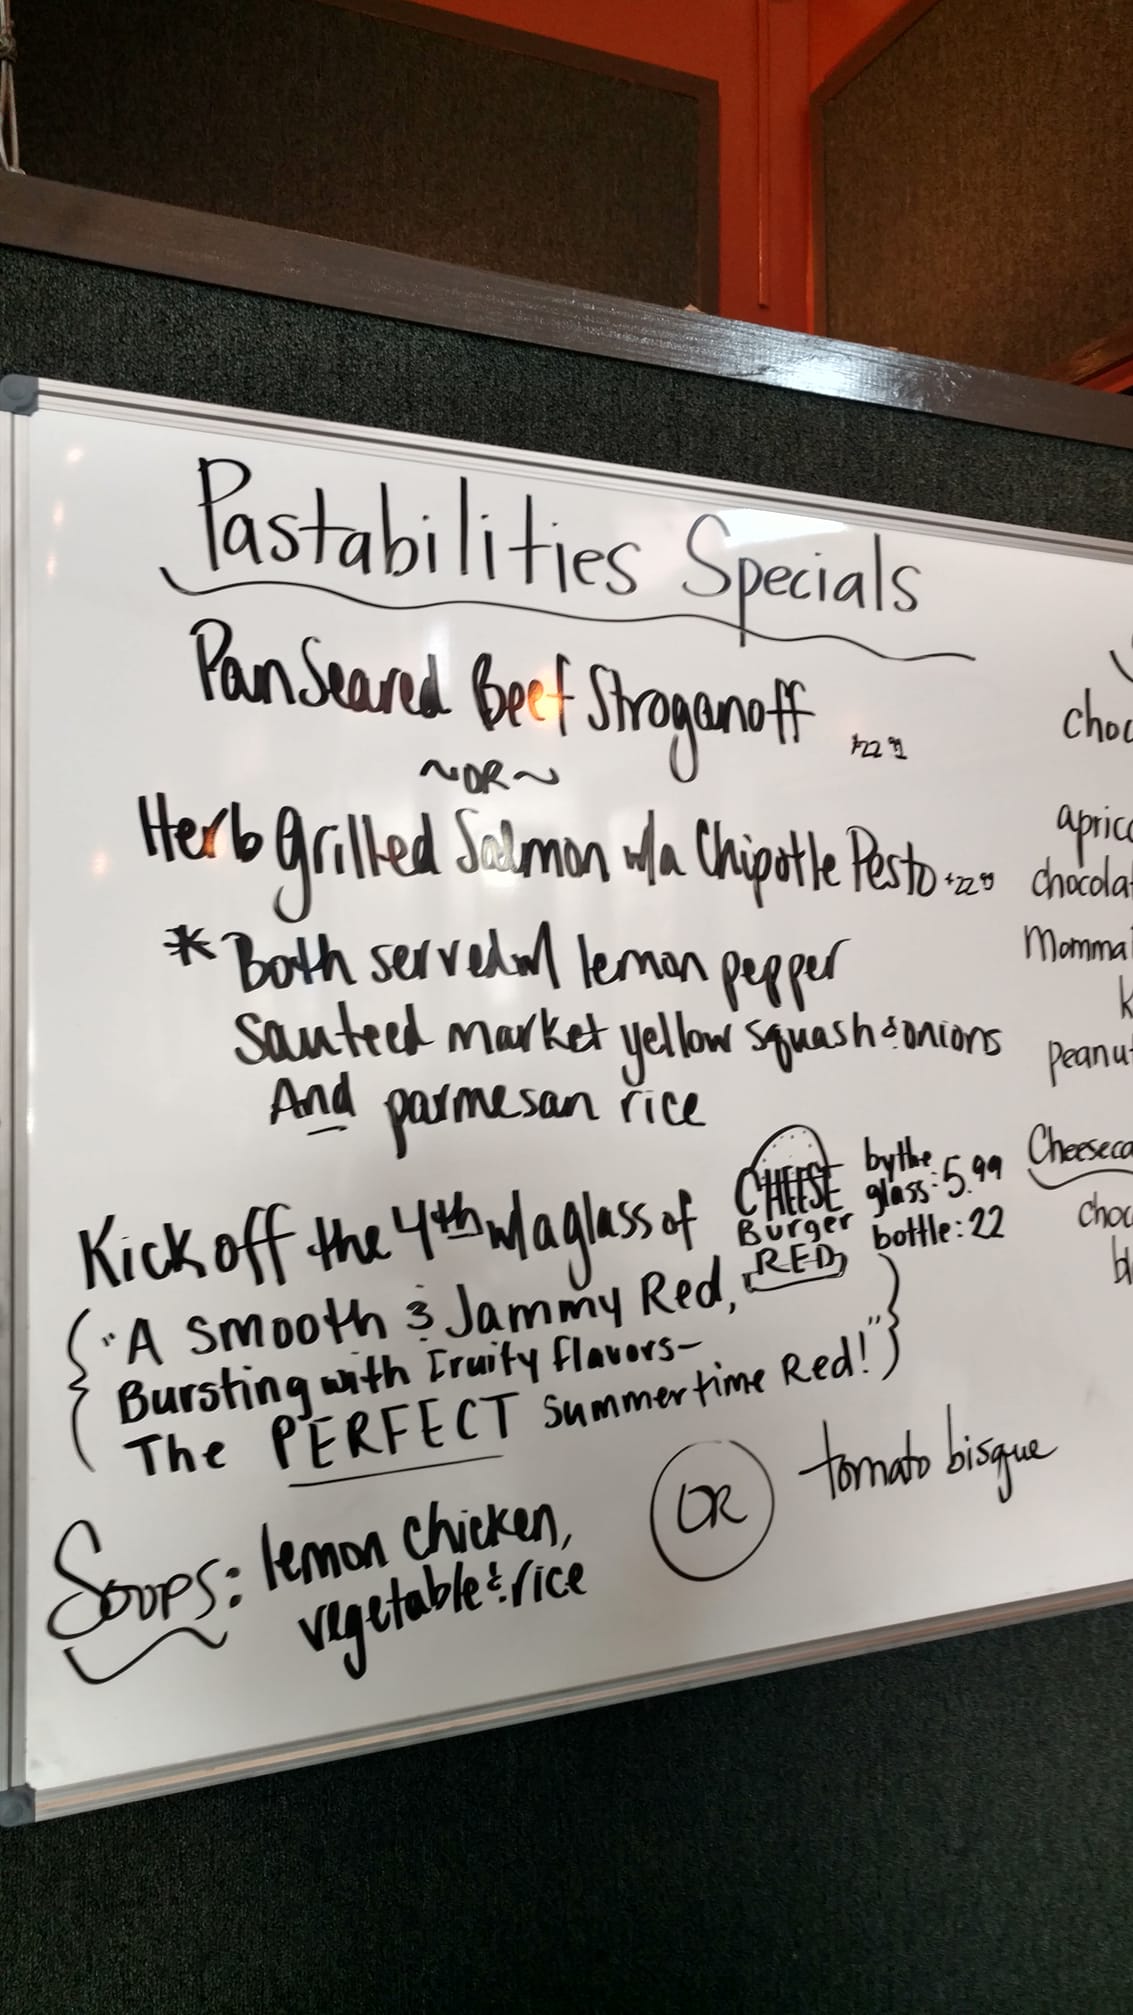 Pastabilities Specials
Pan Seared Beef Stroganoff
~OR~
Herb Grilled Salmon w/a Chipotle Pesto
* Both served w/ lemon pepper
Sauteed market yellow squash & onions
And parmesan rice
Kick off the 4th w/a glass of CHEESE Burger RED
by the glass: 5.99
bottle: 22
{"A smooth & Jammy Red,
Bursting with Fruity Flavors-
The PERFECT Summertime Red!"}
Soups: lemon chicken, vegetable & rice
OR
tomato bisque
Momma